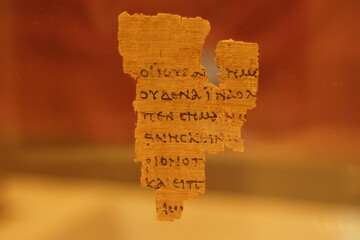 ΟΙΙΟΥΔΑΙ ΗΜΕ
ΟΥΔΕΝΑΙΝΑΟΛ
ΠΕΝϹΗΜΑΙΝ
ΘΝΗϹΚΕΙΝ
ΡΙΟΝΟΠ
ΚΑΙΕΙΠ